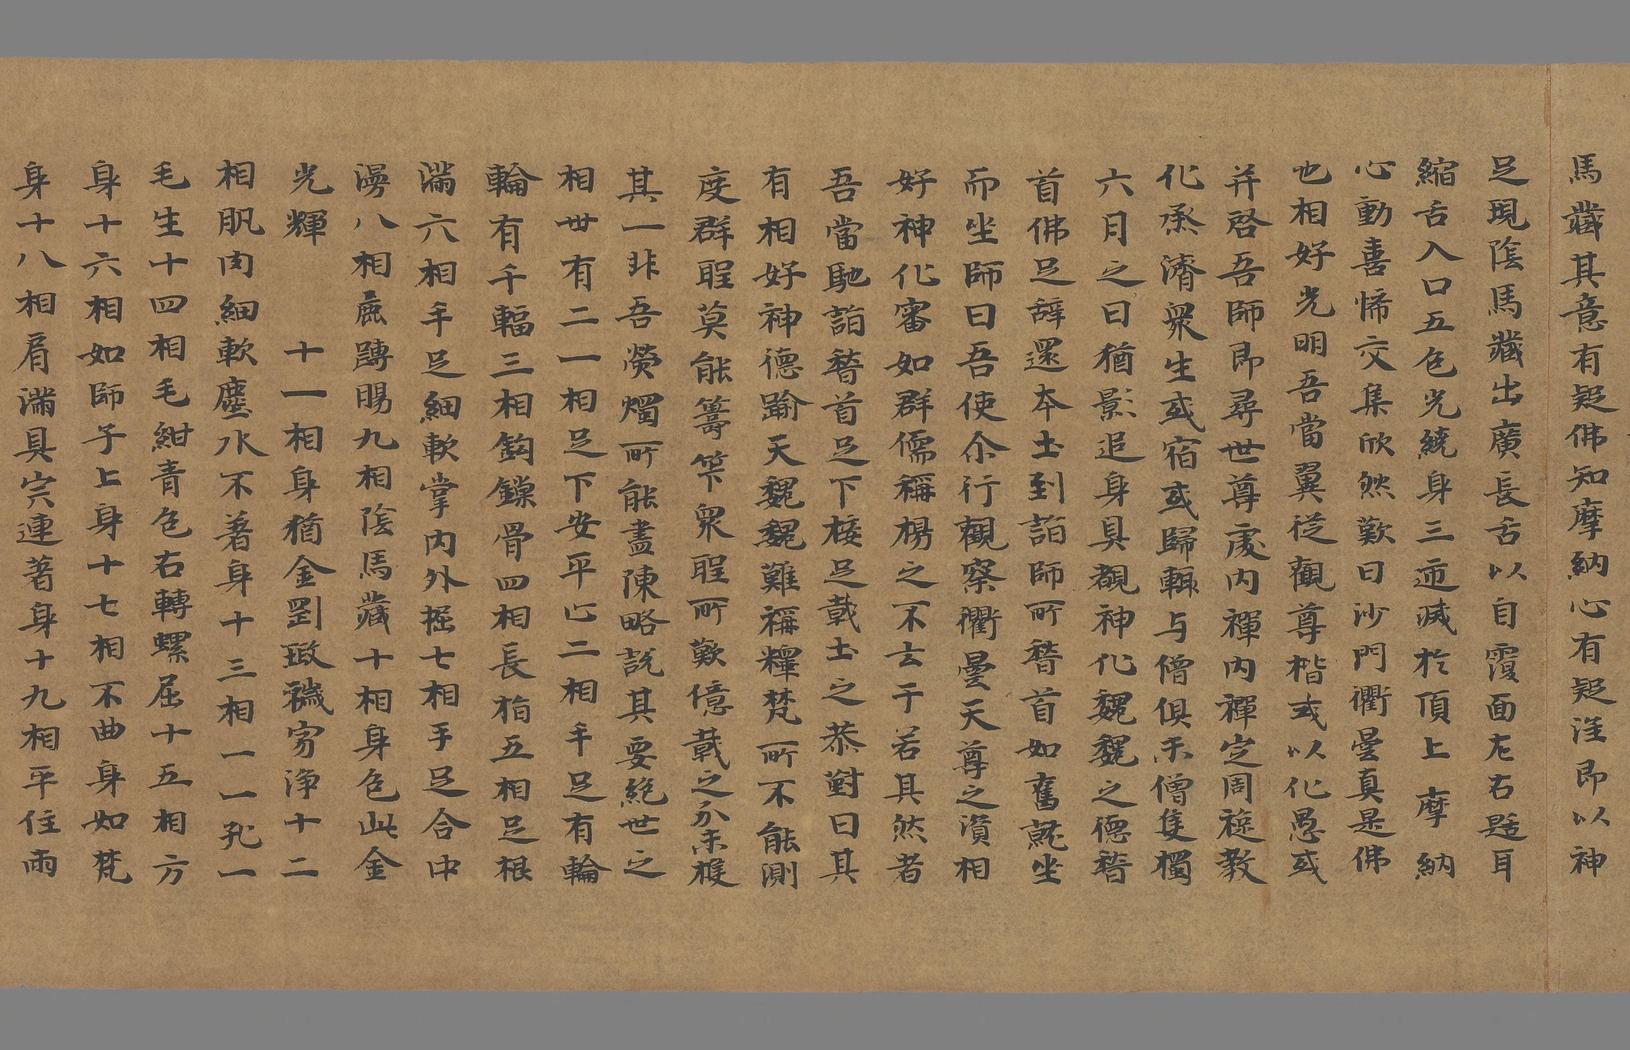 馬藏其意有疑佛知摩納心有疑淫即以神
足現陰馬藏出廣長舌以自覆面左右䑛耳
縮舌入口五色光繞身三迊滅於頂上摩納
心動喜悕交集欣然歎曰沙門衢曇真是佛
也相好光明吾當翼從觀尊楷或以化愚或
并啓吾師即尋世尊處内禪内禪定周旋教
化烝濟衆生或宿或歸輙与僧俱未僧隻獨
六月之日猶影追身具覩神化魏魏之德䭫
首佛足辞還本土到詣師所䭫首如舊就坐
而坐師曰吾使尒行觀察衢曇天尊之演相
好神化審如群儒稱楊之不去干若其然者
吾當馳詣䭫首足下椄足戴土之恭對曰其
有相好神德踰天魏魏難稱糧梵所不能測
度群聖莫能籌筭衆聖所歎億載之分未槯
其一非吾熒燭所能盡陳略説其要絶世之
相丗有二一相足下安平正二相手足有輪
輪有千輻三相鈎鏁骨四相長指五相足根
滿六相手足細軟掌内外握七相手足合中
漫八相鹿䏝腸九相陰馬藏十相身色㸟金
光輝　　十一相身猶金剛𦤺穢㝑淨十二
相肌肉細軟塵水不著身十三相一一孔一
毛生十四相毛毛紺青色右轉螺屈十五相方
身十六相如師子上身十七相不曲身如梵
身十八相肩滿具宍連著身十九相平住兩